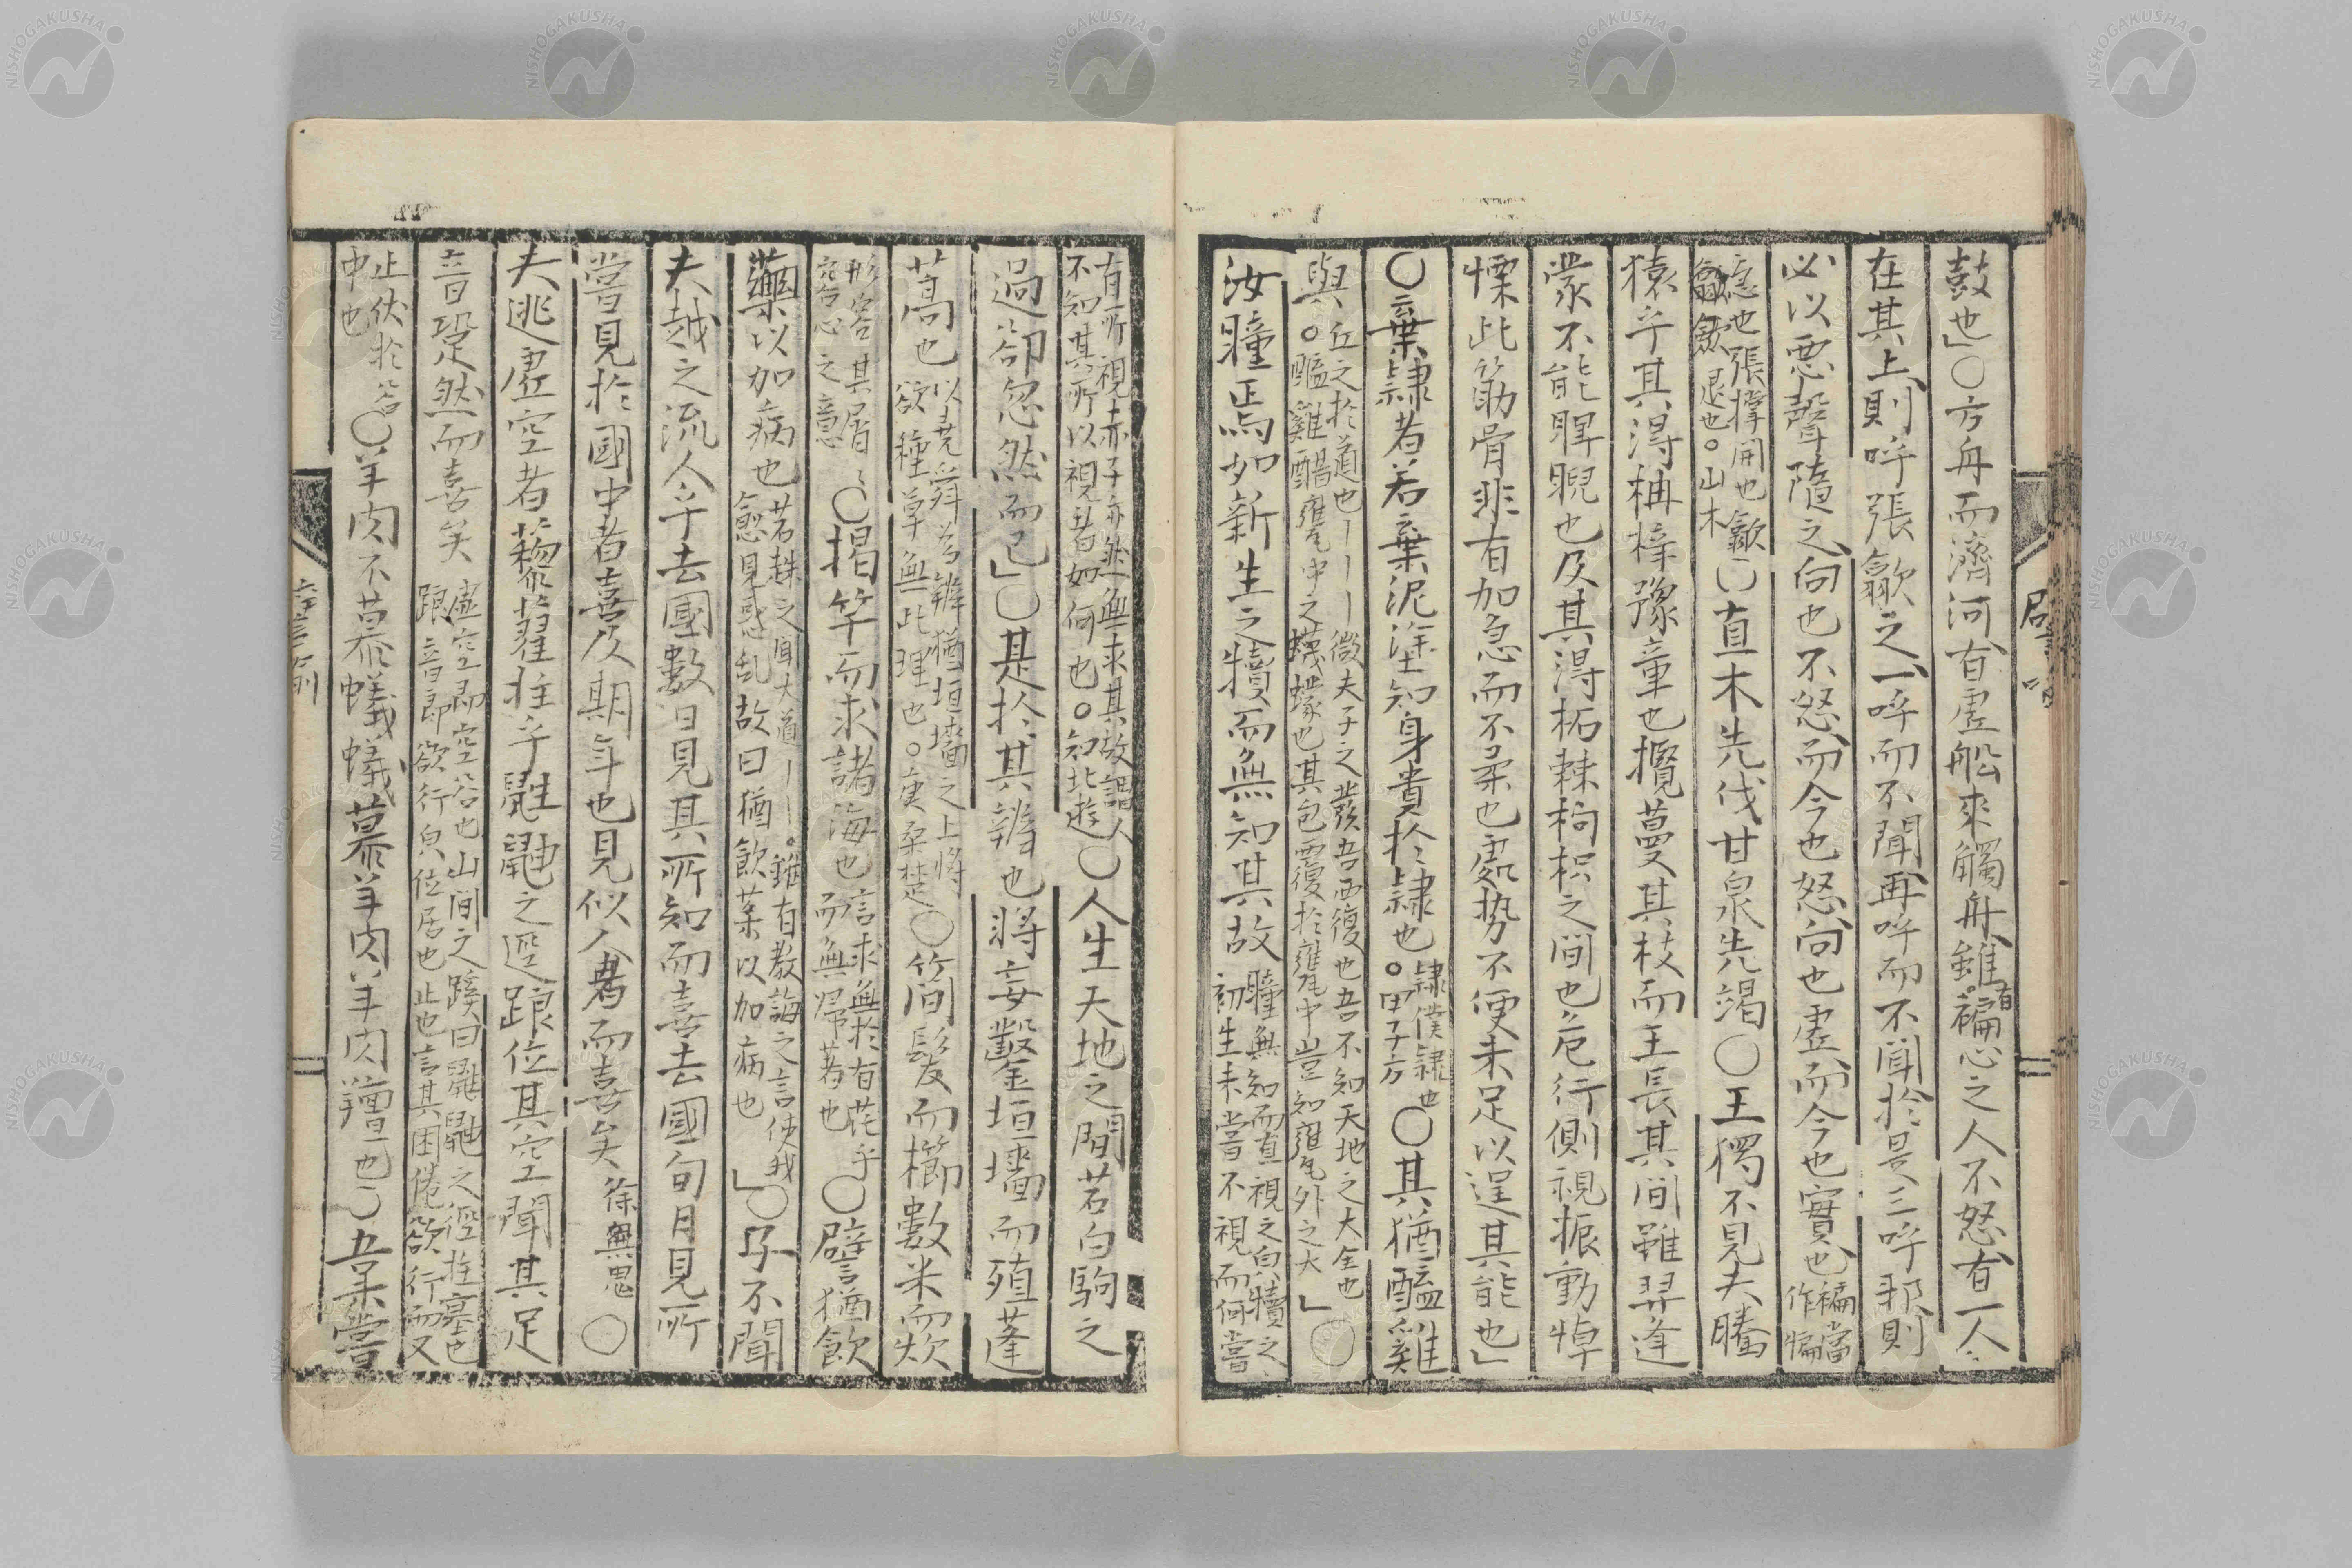 鼓也」○方舟而濟河有虛舩來觸舟雖有褊心之人不怒有一人
在其上則呼張歙之一呼而不聞再呼而不聞於是三呼邪則
必以惡聲隨之向也不怒而今也怒向也虛而今也實也褊當
作惼
急也張撑開也歙
歙斂退也○山木
○直木先伐甘泉先竭○王獨不見夫騰
猿乎其得柟梓豫章也攬蔓其枝而王長其間雖羿逢
蒙不能睥睨也及其得柘棘枸枳之間也危行側視振動悼
慄此筋骨非有加急而不柔也處势不便未足以逞其能也」
○棄隷者若棄泥塗知身貴於隷也○隷僕隷也
田子方
○其猶醯雞
與○丘之於道也丨丨丨微夫子之發吾覆也吾不知天地之大全也
醯雞醋甕中之蠛蠓也其包覆於甕中豈知甕外之大
」○
汝瞳焉如新生之犢而無知其故瞳無知而直視之皃犢之
初生未嘗不視而何嘗
有所視赤子亦然無求其故謂人
不知其所以視者如何也○知北遊
○人生天地之間若白駒之
過郤忽然而已」○是於其辨也將妄鑿垣墻而殖蓬
蒿也以堯舜為辨猶垣墻之上將
欲種草無此理也○庚桑楚
○簡髮而櫛數米而炊
形容其屑〻
容心之意
○揭竿而求諸海也言求無於有茫乎
而無㱕著也
○譬猶飲
藥以加病也若趎之聞大道丨丨○雖有教誨之言使我
愈見惑乱故曰猶飲藥以加病也
」○子不聞
夫越之流人乎去國數日見其所知而喜去國旬月見所
嘗見於國中者喜及期年也見似人者而喜矣徐無鬼○
夫逃虛空者藜藋拄乎鼪鼬之逕踉位其空聞其足
音跫然而喜矣虛空即空谷也山間之蹊曰鼪鼬之徑拄塞也
踉音郎欲行皃位居也止也言其困倦欲行而又
止伏於谷
中也
○羊肉不慕蟻蟻慕羊肉羊肉羶也○吾未嘗